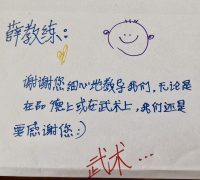 薛教练：
谢谢您细心地教导我们，无论是
在品德上或在武术上，我们还是
要感谢您:)
武术...